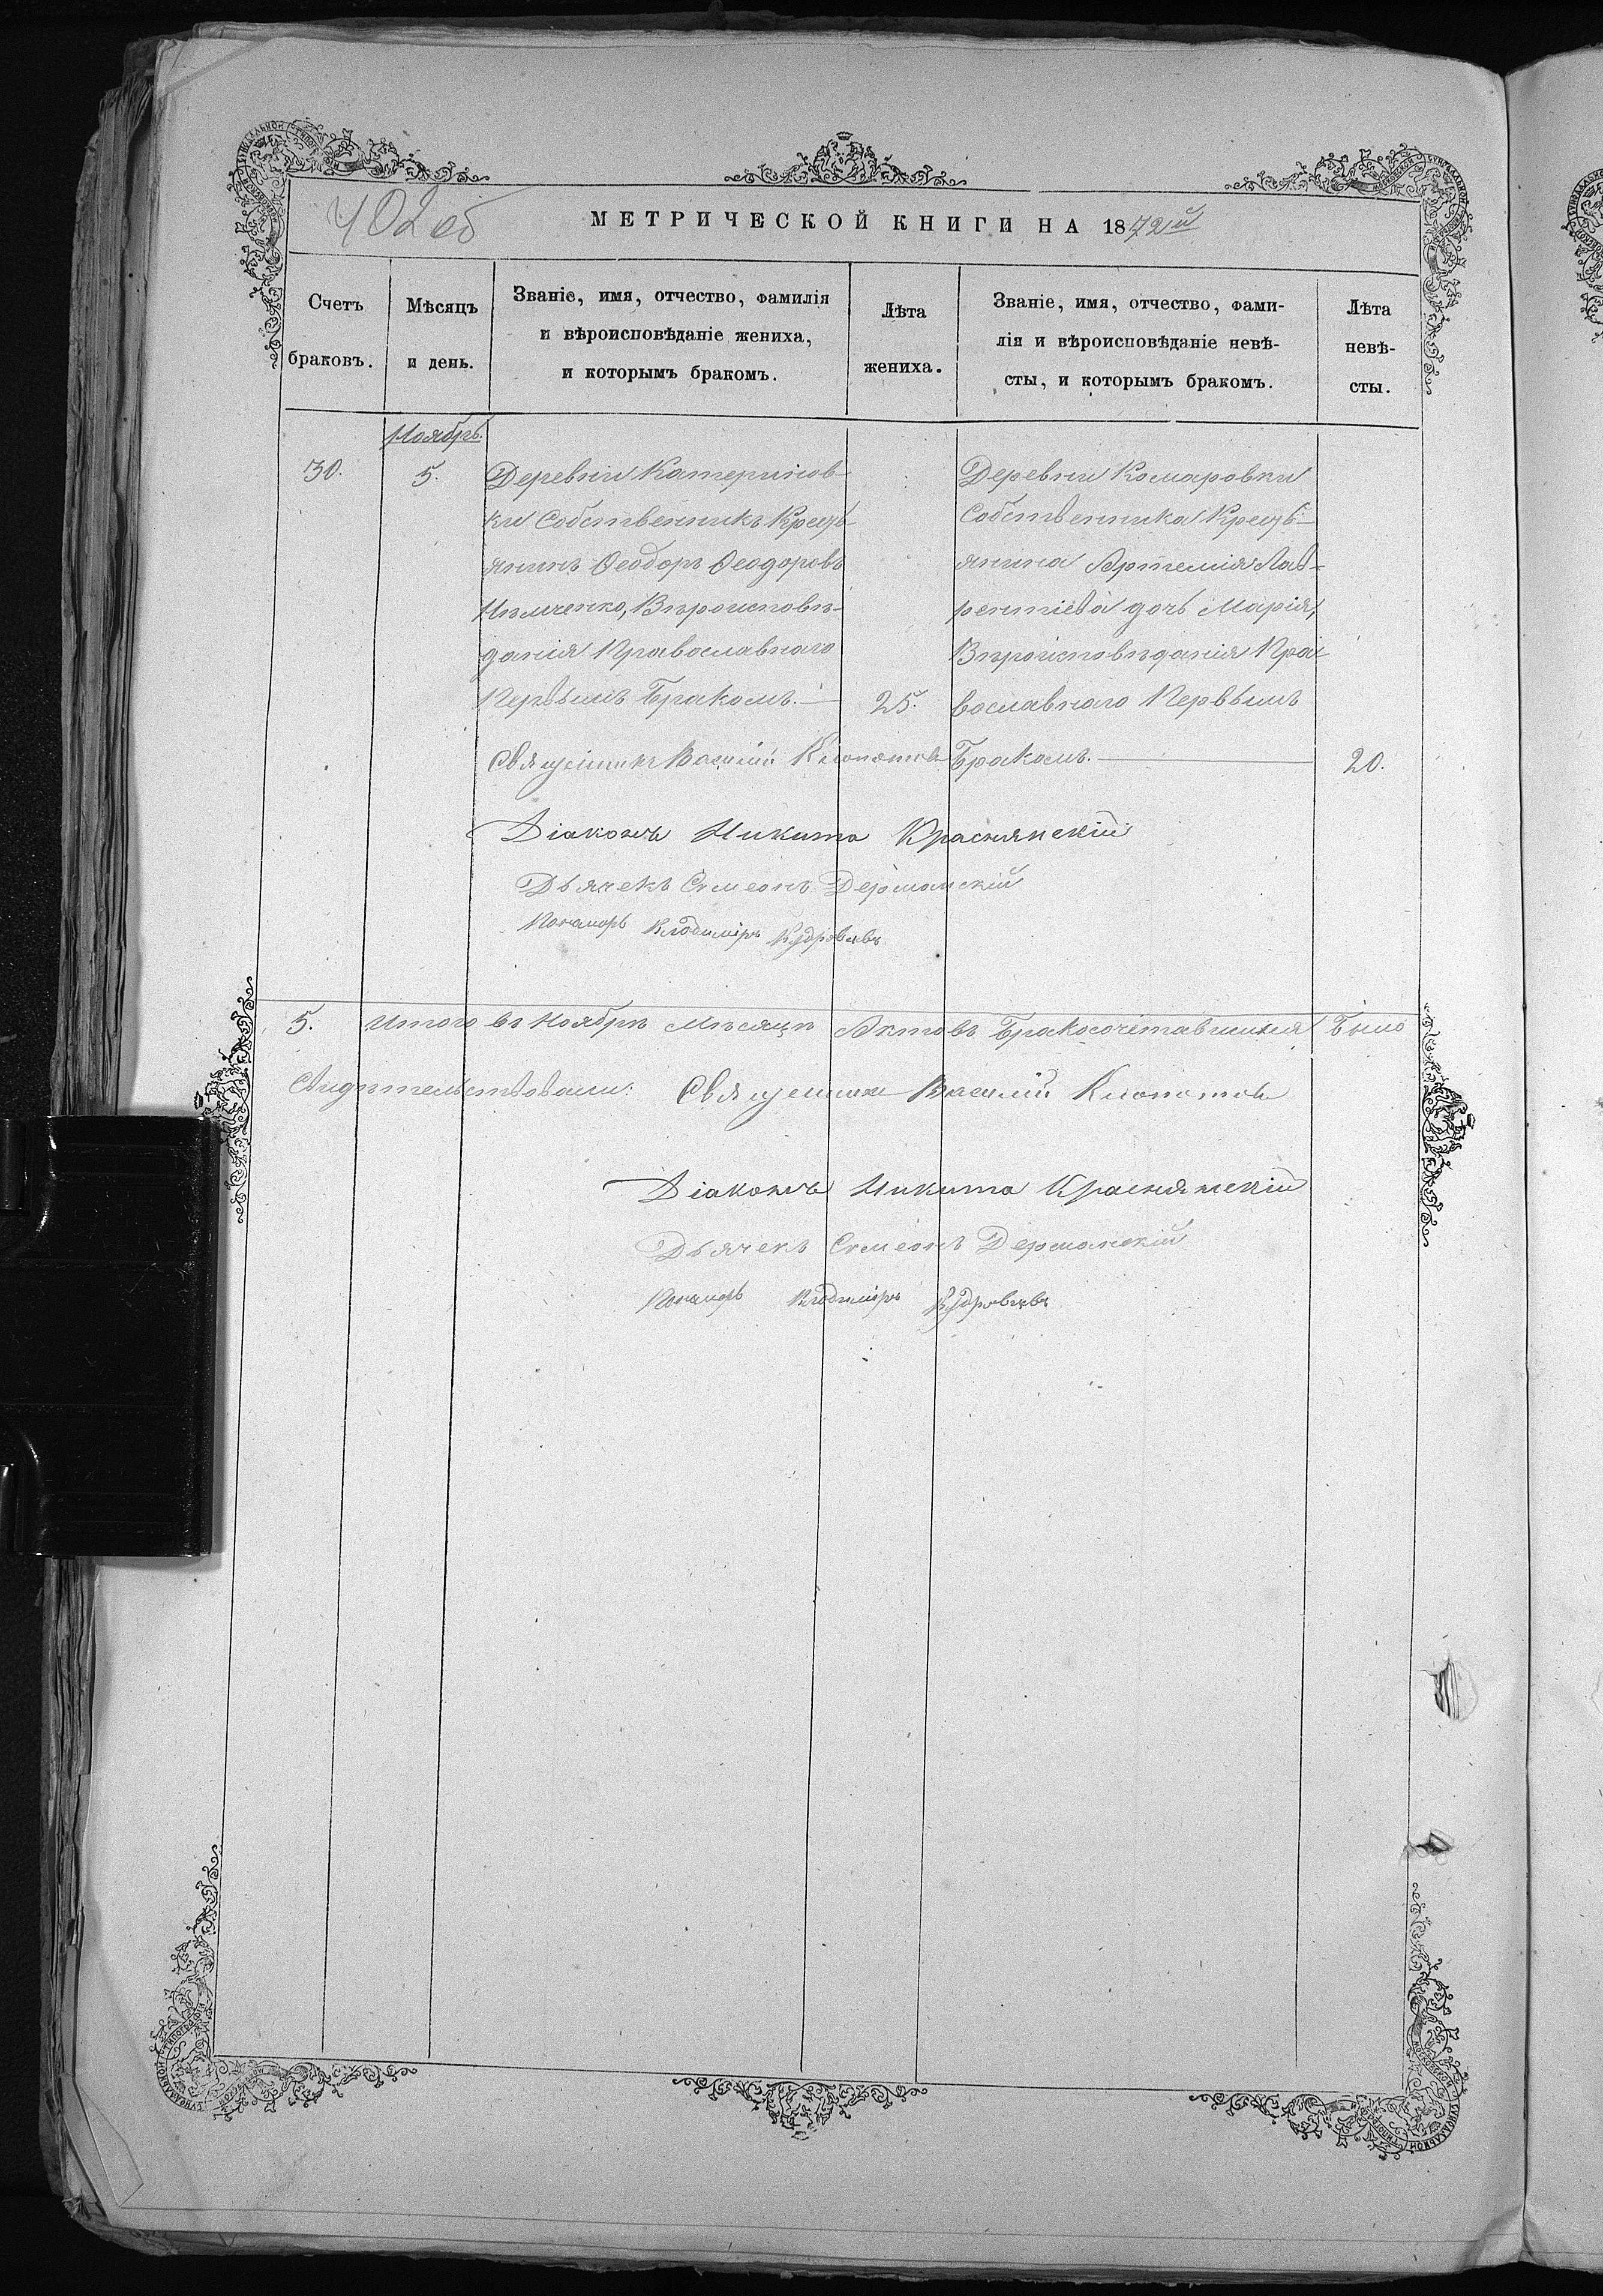 402 об
МЕТРИЧЕСКОЙ КНИГИ НА 1872й
Счетъ браковъ.
Мѣсяцъ и день.
Званіе, имя, отчество, фамилія
и вѣроисповѣданіе жениха,
и которымъ бракомъ.
Лѣта жениха.
Званіе, имя, отчество, фами-
лія и вѣроисповѣданіе невѣ-
сты, и которымъ бракомъ.
Лѣта невѣ-
сты.
Ноябрь.
30.
5.
Деревни Катеринов-
ки Собственникъ Кресть-
янинъ Ѳеодоръ Ѳеодоровъ
Нѣмченко, Вѣроисповѣ-
данія Православнаго
Первымъ Бракомъ. —
25.
Деревни Комаровки
Собственника Кресть-
янина Артемія Лав-
рентіева дочь Марія,
Вѣроисповѣданія Пра-
вославнаго Первымъ
Бракомъ. —
20.
Священникъ Василій Клопотовъ
Діаконъ Никита Краснянскій
Дьячекъ Семеонъ Дерманскій
Пономарь Владиміръ
5. Итого въ Ноябрѣ Мѣсяцѣ Актовъ Бракосочетавшихся Было
Свидѣтельствовали: Священникъ Василій Клопотовъ
Діаконъ Никита Краснянскій
Дьячекъ Семеонъ Дерманскій
Пономарь Владиміръ